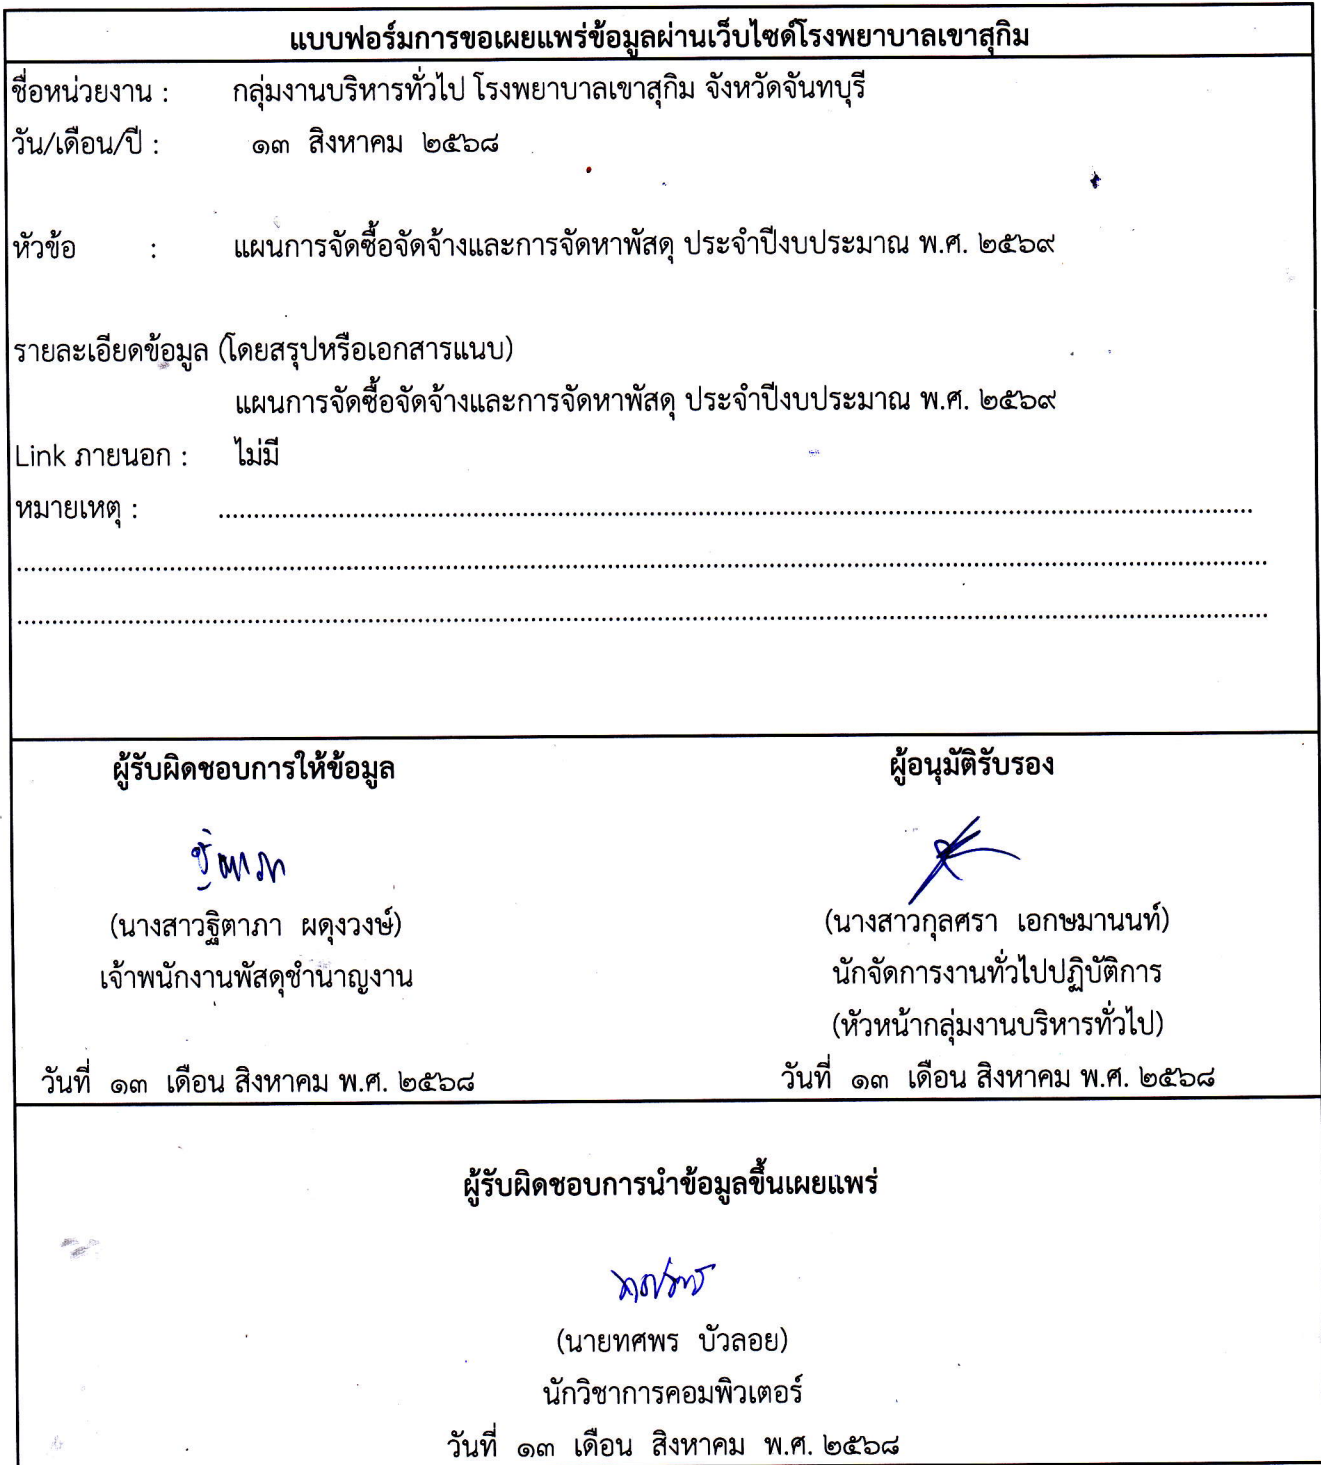 แบบฟอร์มการขอเผยแพร่ข้อมูลผ่านเว็บไซต์โรงพยาบาลเขาสุกิม
ชื่อหน่วยงาน : กลุ่มงานบริหารทั่วไป โรงพยาบาลเขาสุกิม จังหวัดจันทบุรี
วัน/เดือน/ปี : ๑๓ สิงหาคม ๒๕๖๘
หัวข้อ : แผนการจัดซื้อจัดจ้างและการจัดหาพัสดุ ประจำปีงบประมาณ พ.ศ. ๒๕๖๙
รายละเอียดข้อมูล (โดยสรุปหรือเอกสารแนบ)
แผนการจัดซื้อจัดจ้างและการจัดหาพัสดุ ประจำปีงบประมาณ พ.ศ. ๒๕๖๙
Link ภายนอก : ไม่มี
หมายเหตุ : ........................................................................
........................................................................
........................................................................
ผู้รับผิดชอบการให้ข้อมูล
ฐิตาภา
(นางสาวฐิตาภา ผดุงวงษ์)
เจ้าพนักงานพัสดุชำนาญงาน
วันที่ ๑๓ เดือน สิงหาคม พ.ศ. ๒๕๖๘
ผู้อนุมัติรับรอง
(นางสาวกุลศรา เอกษมานนท์)
นักจัดการงานทั่วไปปฏิบัติการ
(หัวหน้ากลุ่มงานบริหารทั่วไป)
วันที่ ๑๓ เดือน สิงหาคม พ.ศ. ๒๕๖๘
ผู้รับผิดชอบการนำข้อมูลขึ้นเผยแพร่
(นายทศพร บัวลอย)
นักวิชาการคอมพิวเตอร์
วันที่ ๑๓ เดือน สิงหาคม พ.ศ. ๒๕๖๘